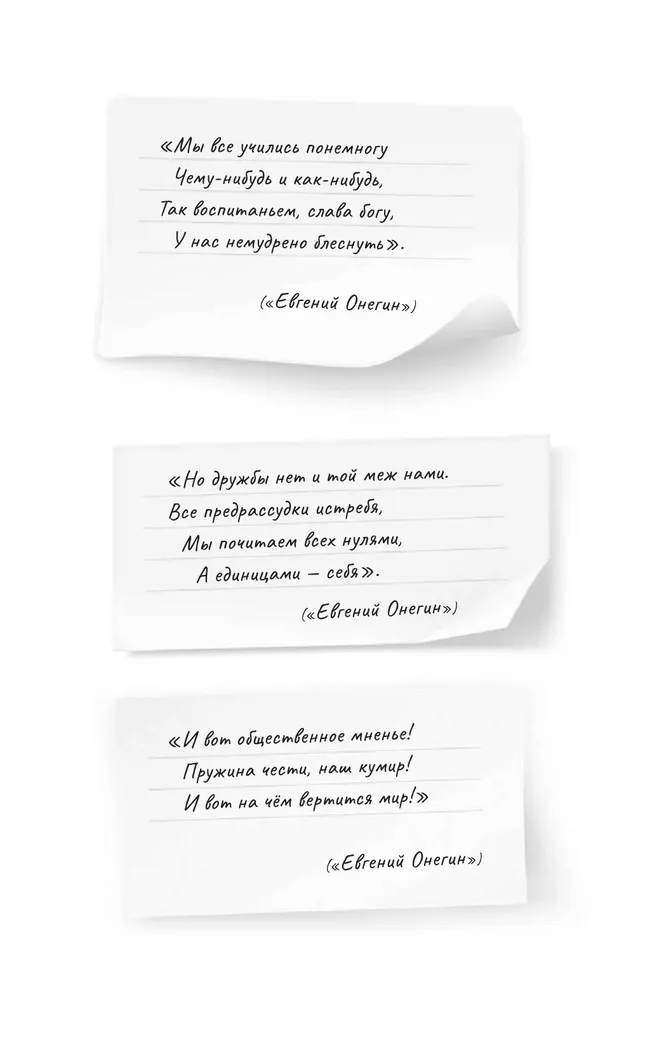 «Мы все учились понемногу
Чему-нибудь и как-нибудь,
Так воспитаньем, слава богу,
У нас немудрено блеснуть».
(«Евгений Онегин»)
«Но дружбы нет и той меж нами.
Все предрассудки истребя,
Мы почитаем всех нулями,
А единицами — себя».
(«Евгений Онегин»)
«И вот общественное мненье!
Пружина чести, наш кумир!
И вот на чём вертится мир!»
(«Евгений Онегин»)